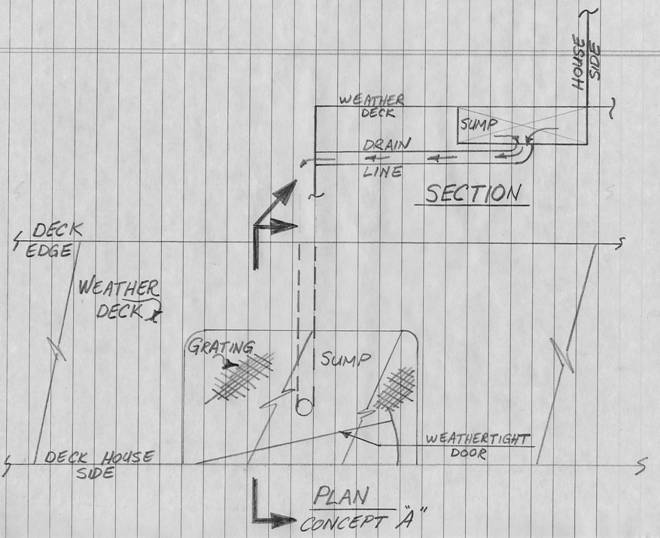 HOUSE
SIDE
WEATHER
DECK
SUMP
DRAIN
LINE
SECTION
DECK
EDGE
WEATHER
DECK
GRATING
SUMP
WEATHERTIGHT
DOOR
DECK HOUSE
SIDE
PLAN
CONCEPT "A"